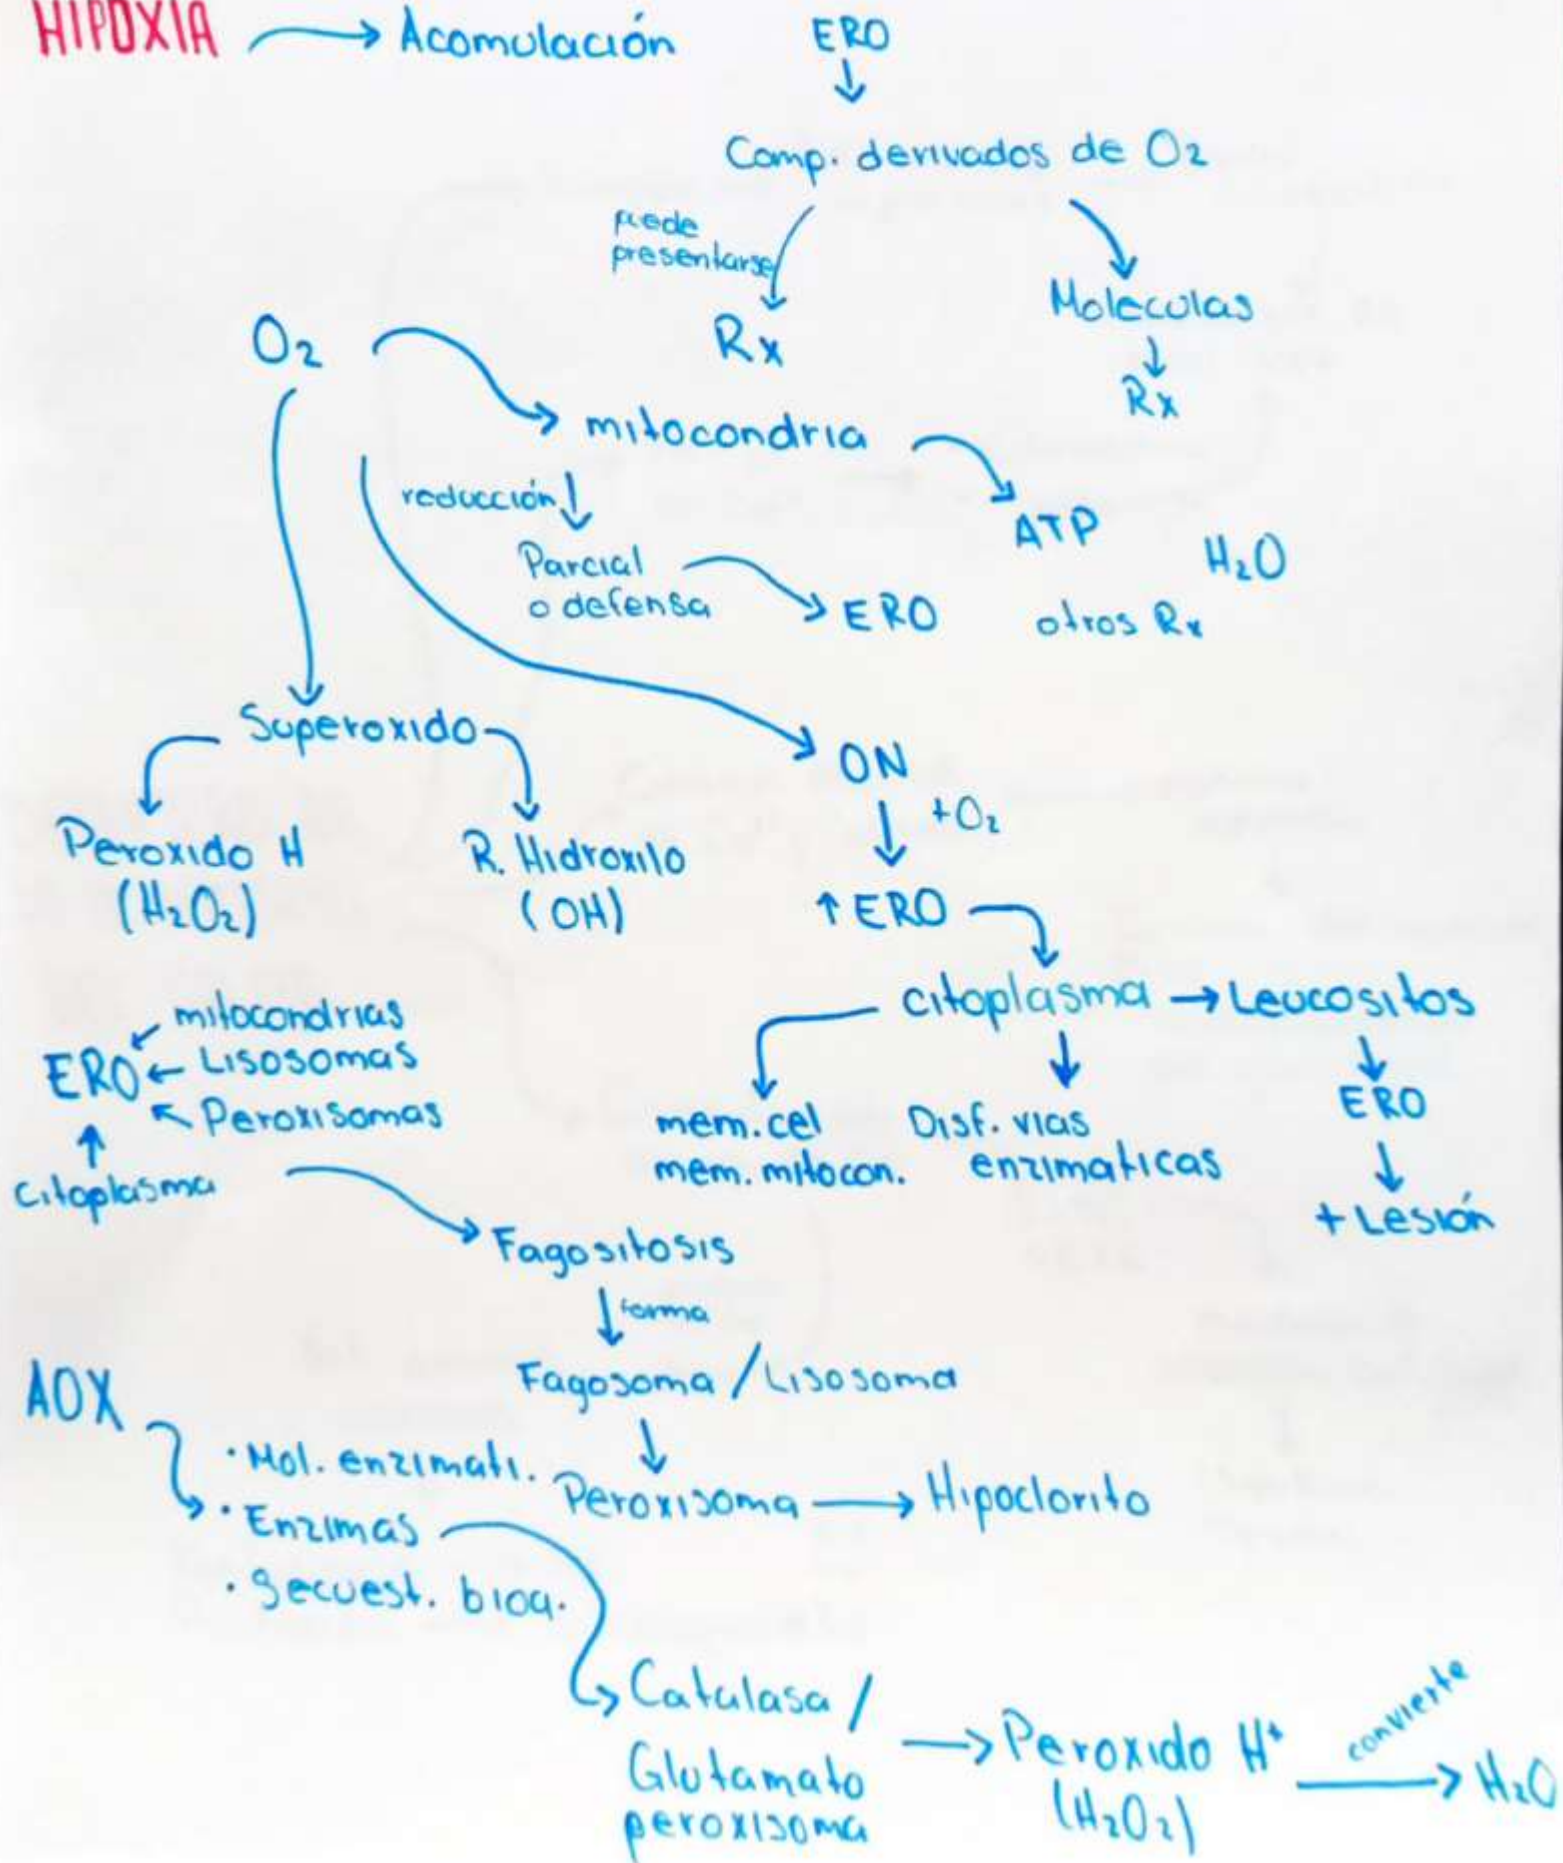 HIPOXIA → Acomulación
ERO
↓
Comp. derivados de O2
puede
presentarse
Rx
Moleculas
↓
Rx
O2
mitocondria
ATP
H2O
reducción ↓
Parcial
o defensa
ERO
otros Rx
Superoxido
Peroxido H
(H2O2)
R. Hidroxilo
(OH)
ON
↓ +O2
↑ ERO
citoplasma → Leucositos
mem. cel
mem. mitocon.
Disf. vias
enzimaticas
ERO
↓
+ Lesión
mitocondrias
ERO ← Lisosomas
Peroxisomas
↑
citoplasma
Fagositosis
↓ forma
Fagosoma / Lisosoma
↓
Peroxisoma → Hipoclorito
AOX
· Mol. enzimati.
· Enzimas
· Secuest. bioq.
Catalasa /
Glutamato
peroxisoma
→ Peroxido H+
(H2O2)
convierte
→ H2O